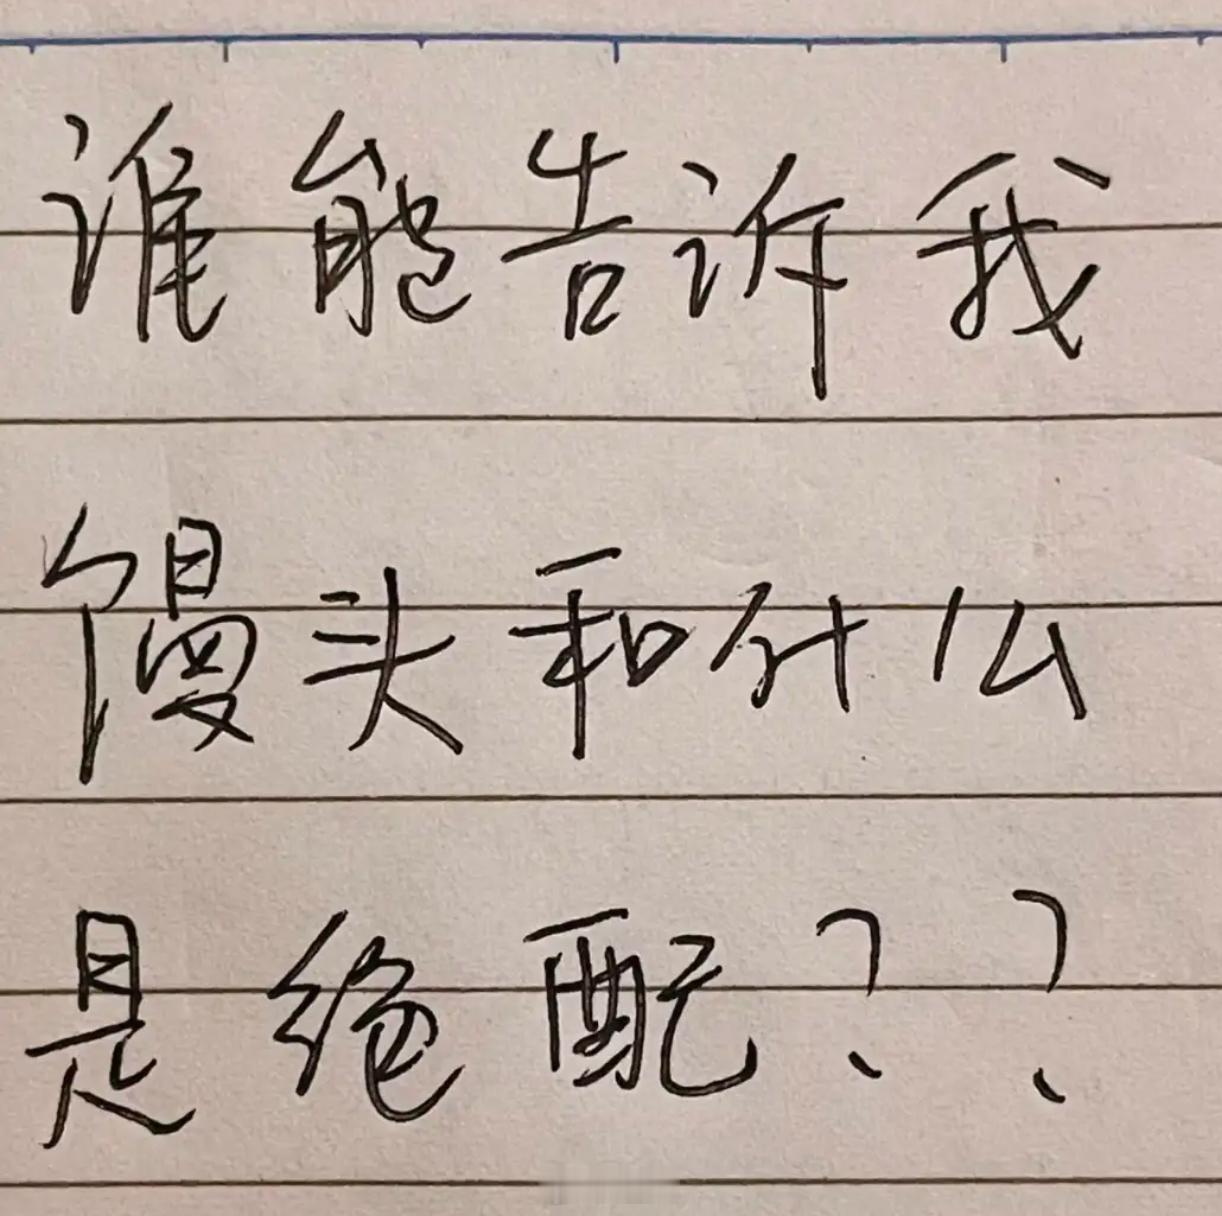 谁能告诉我
馒头和什么
是绝配？？